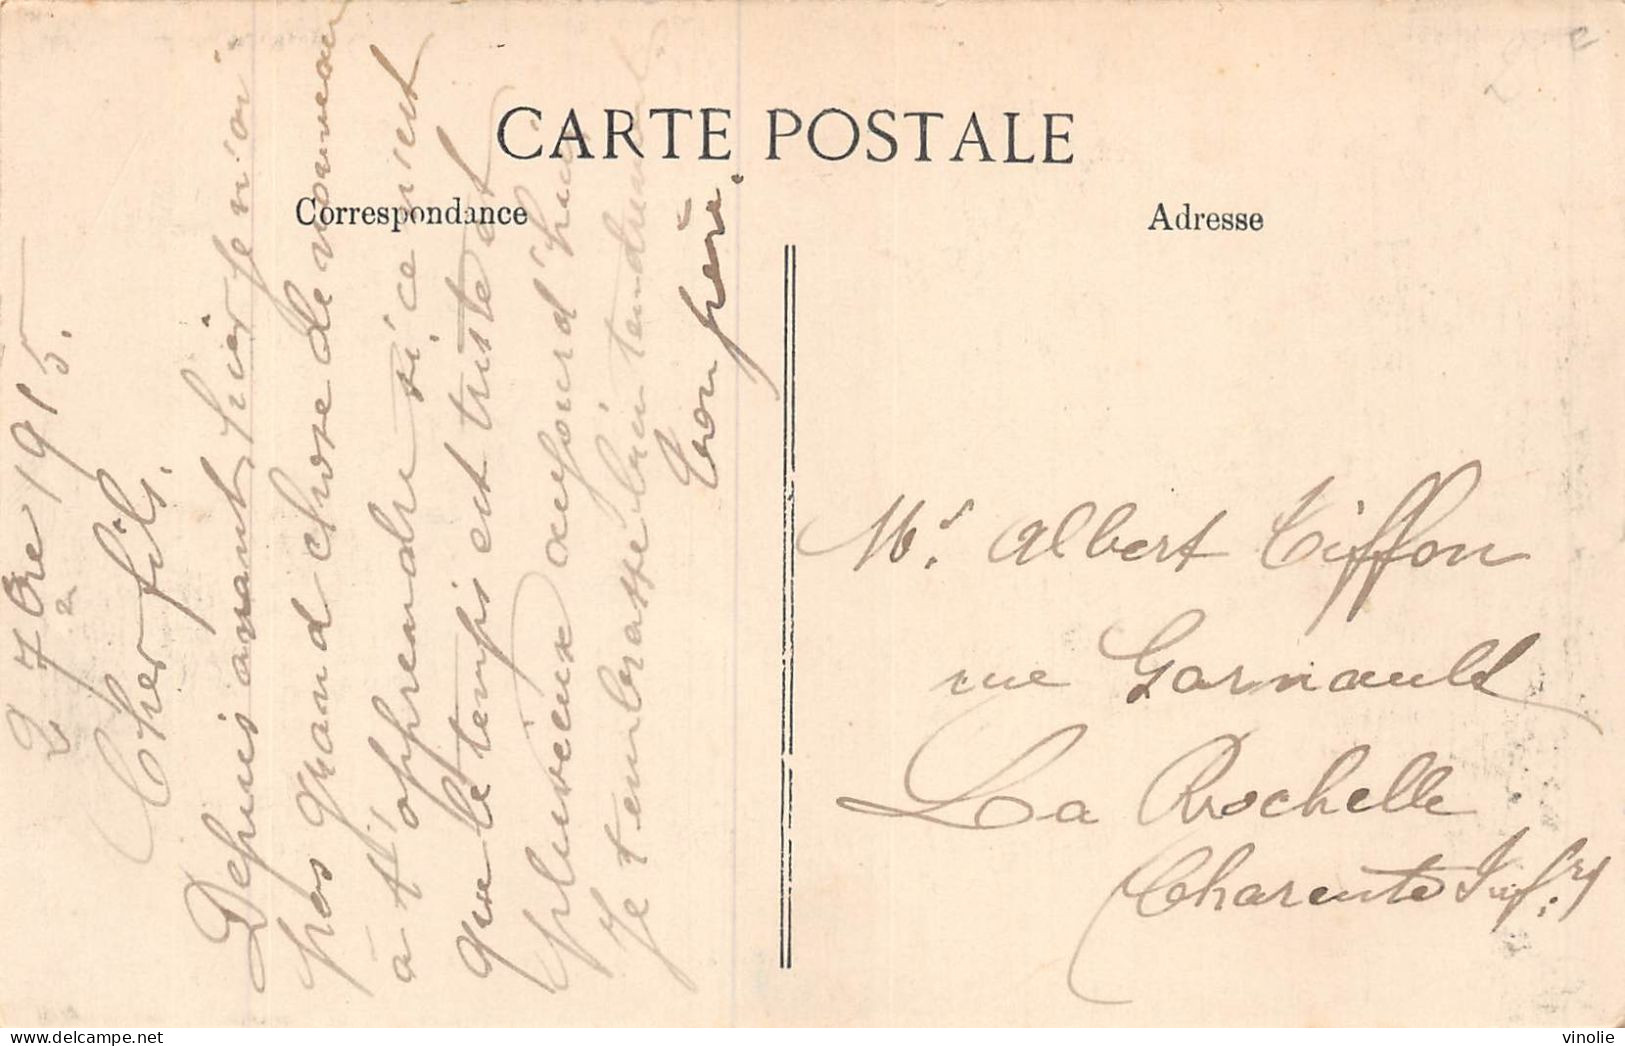 CARTE POSTALE
Correspondance
Adresse
2 7bre 1915.
Cher fils.
Depuis avant hier je n'ai
pas grand chose de nouveau
à t'apprendre si ce n'est
que le temps est triste et
pluvieux aujourd'hui
Je t'embrasse bien tendrement
Ton père.
Mr. Albert Tiffon
rue Garnauld
La Rochelle
Charente Infre
vinolie